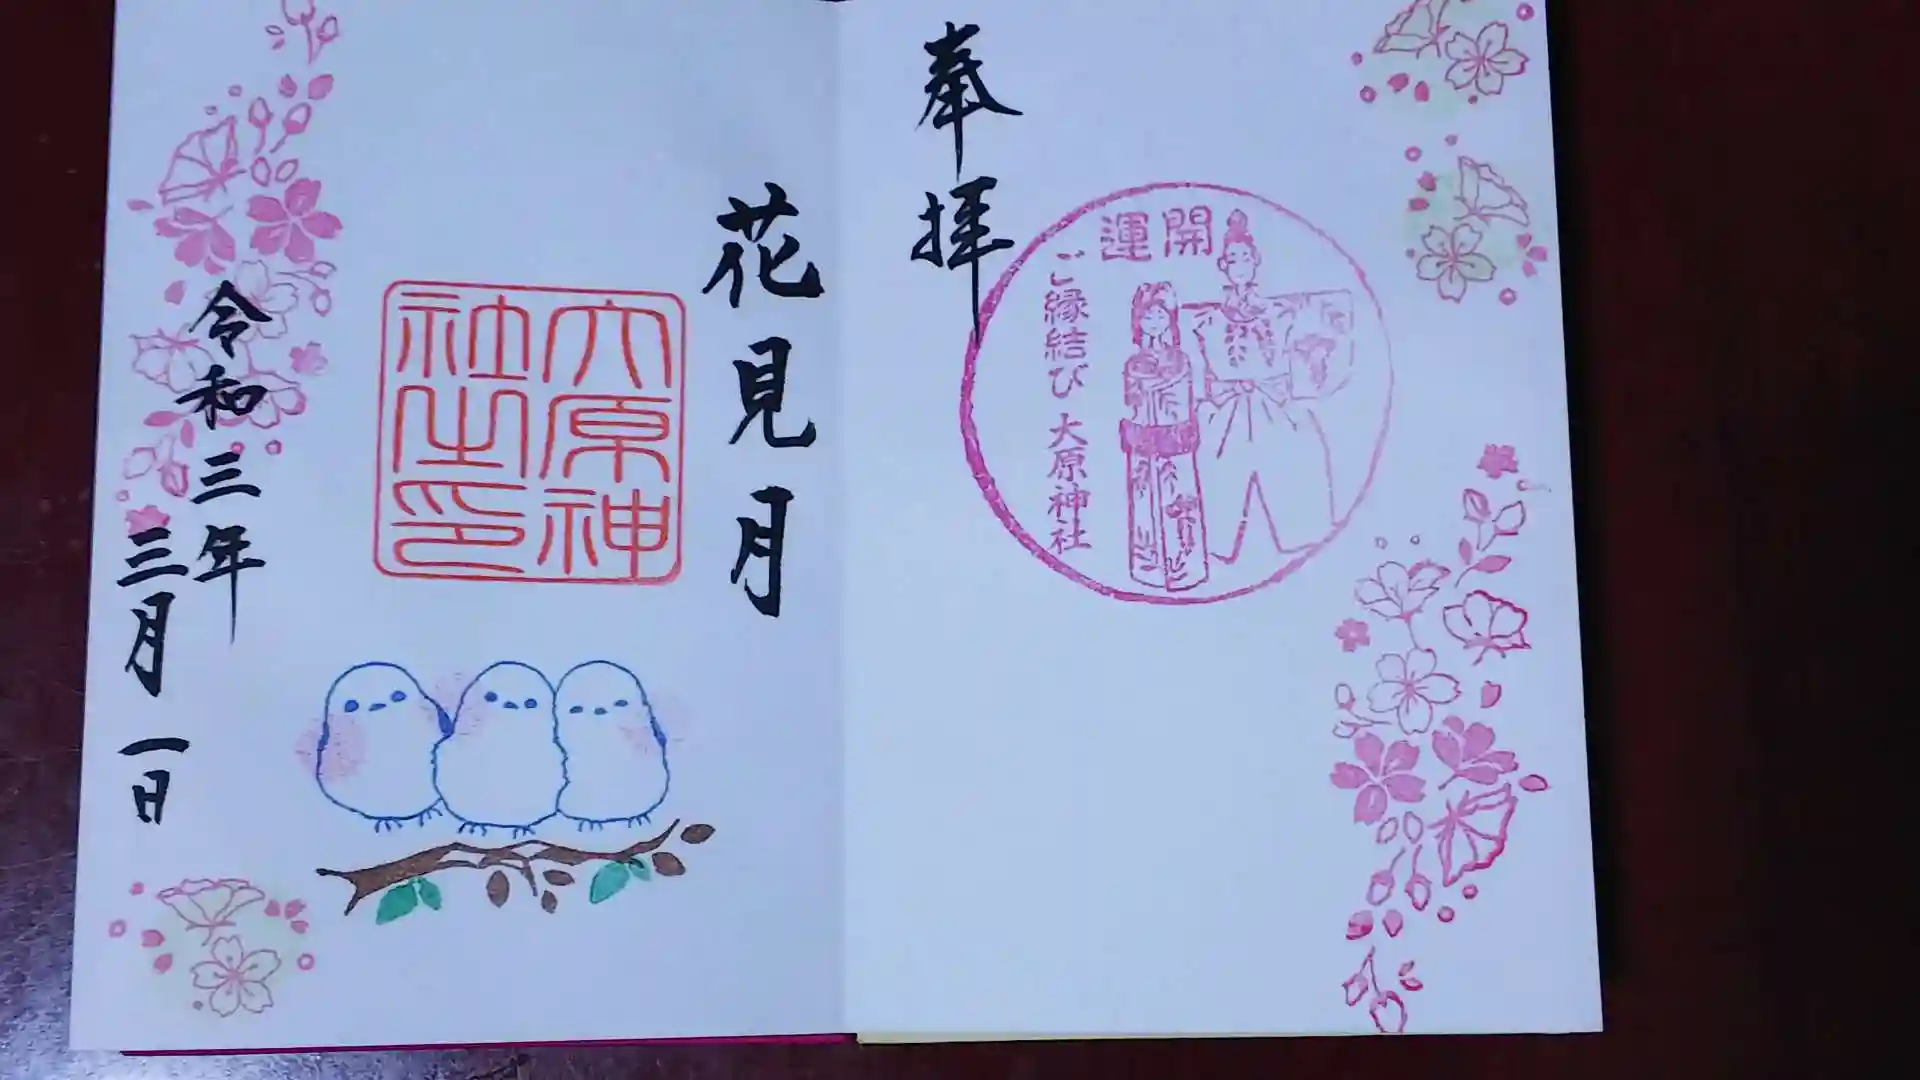 奉拝
開運
ご縁結び 大原神社
花見月
大原神社之印
令和三年
三月一日